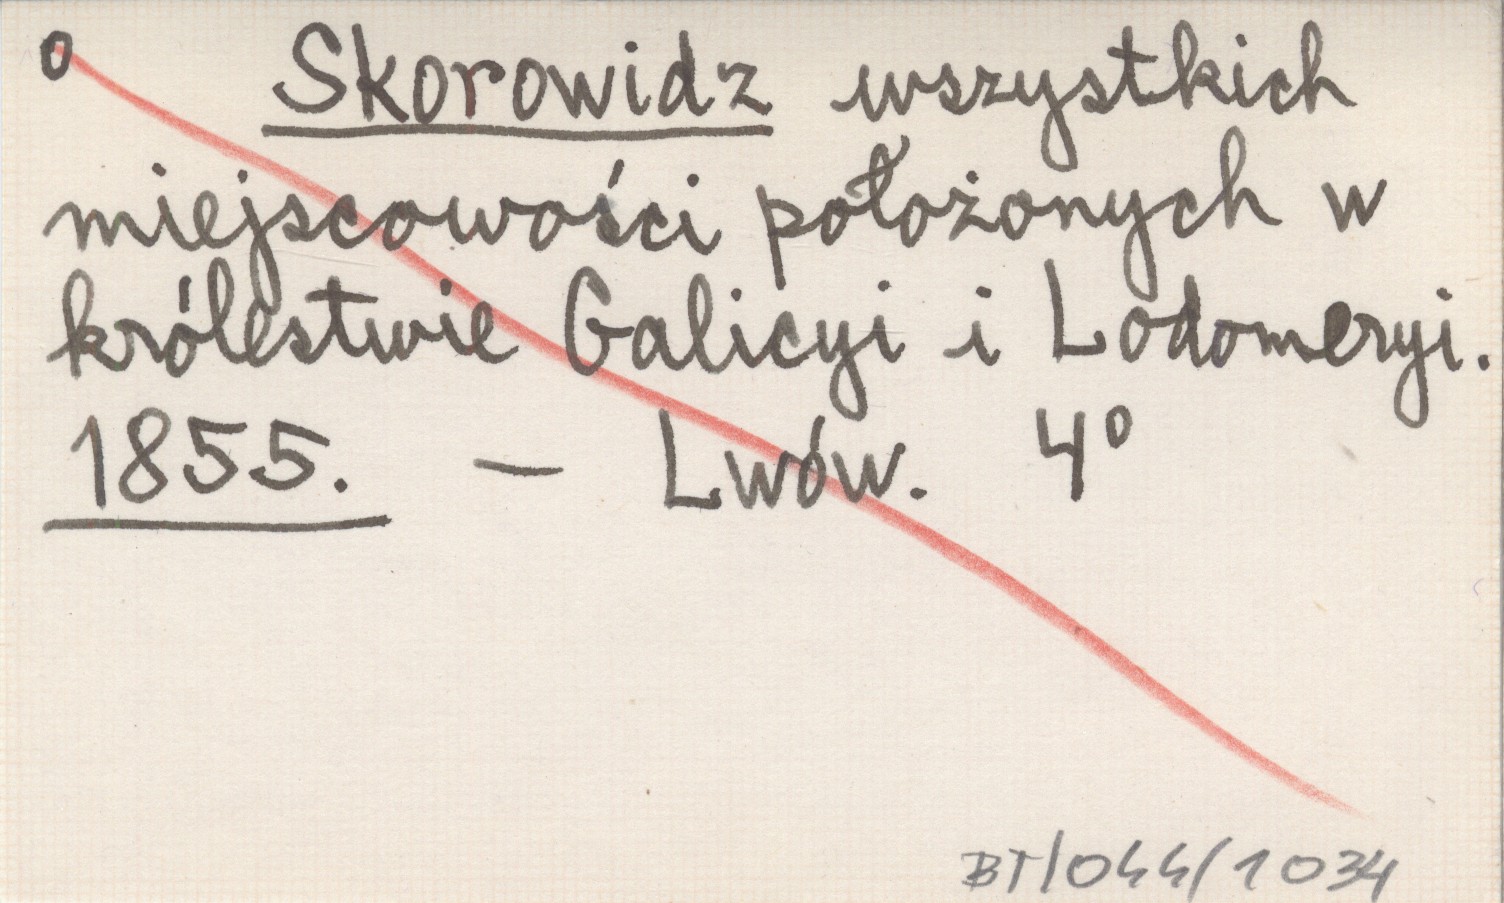 o Skorowidz wszystkich
miejscowości położonych w
królestwie Galicyi i Lodomeryi.
1855. — Lwów. 4º
BT/044/1034